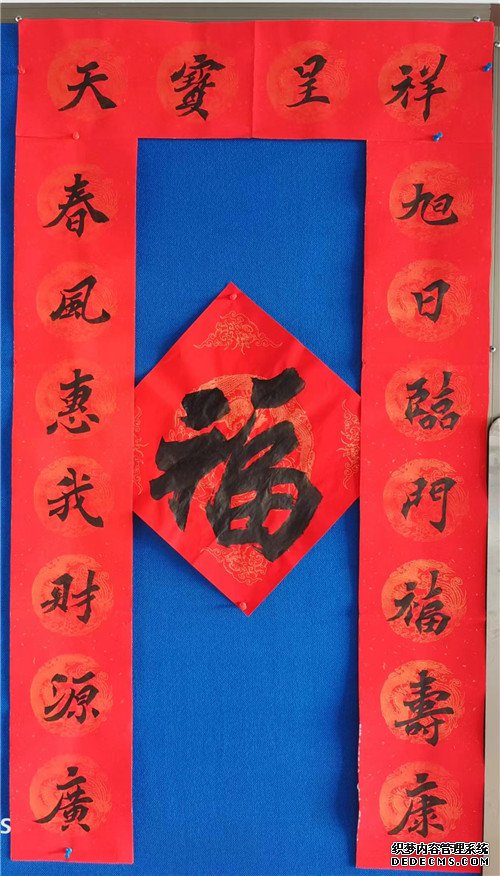 天寶呈祥
旭日臨門福壽康
春風惠我財源廣
福
S
织梦内容管理系统
DEDECMS.COM